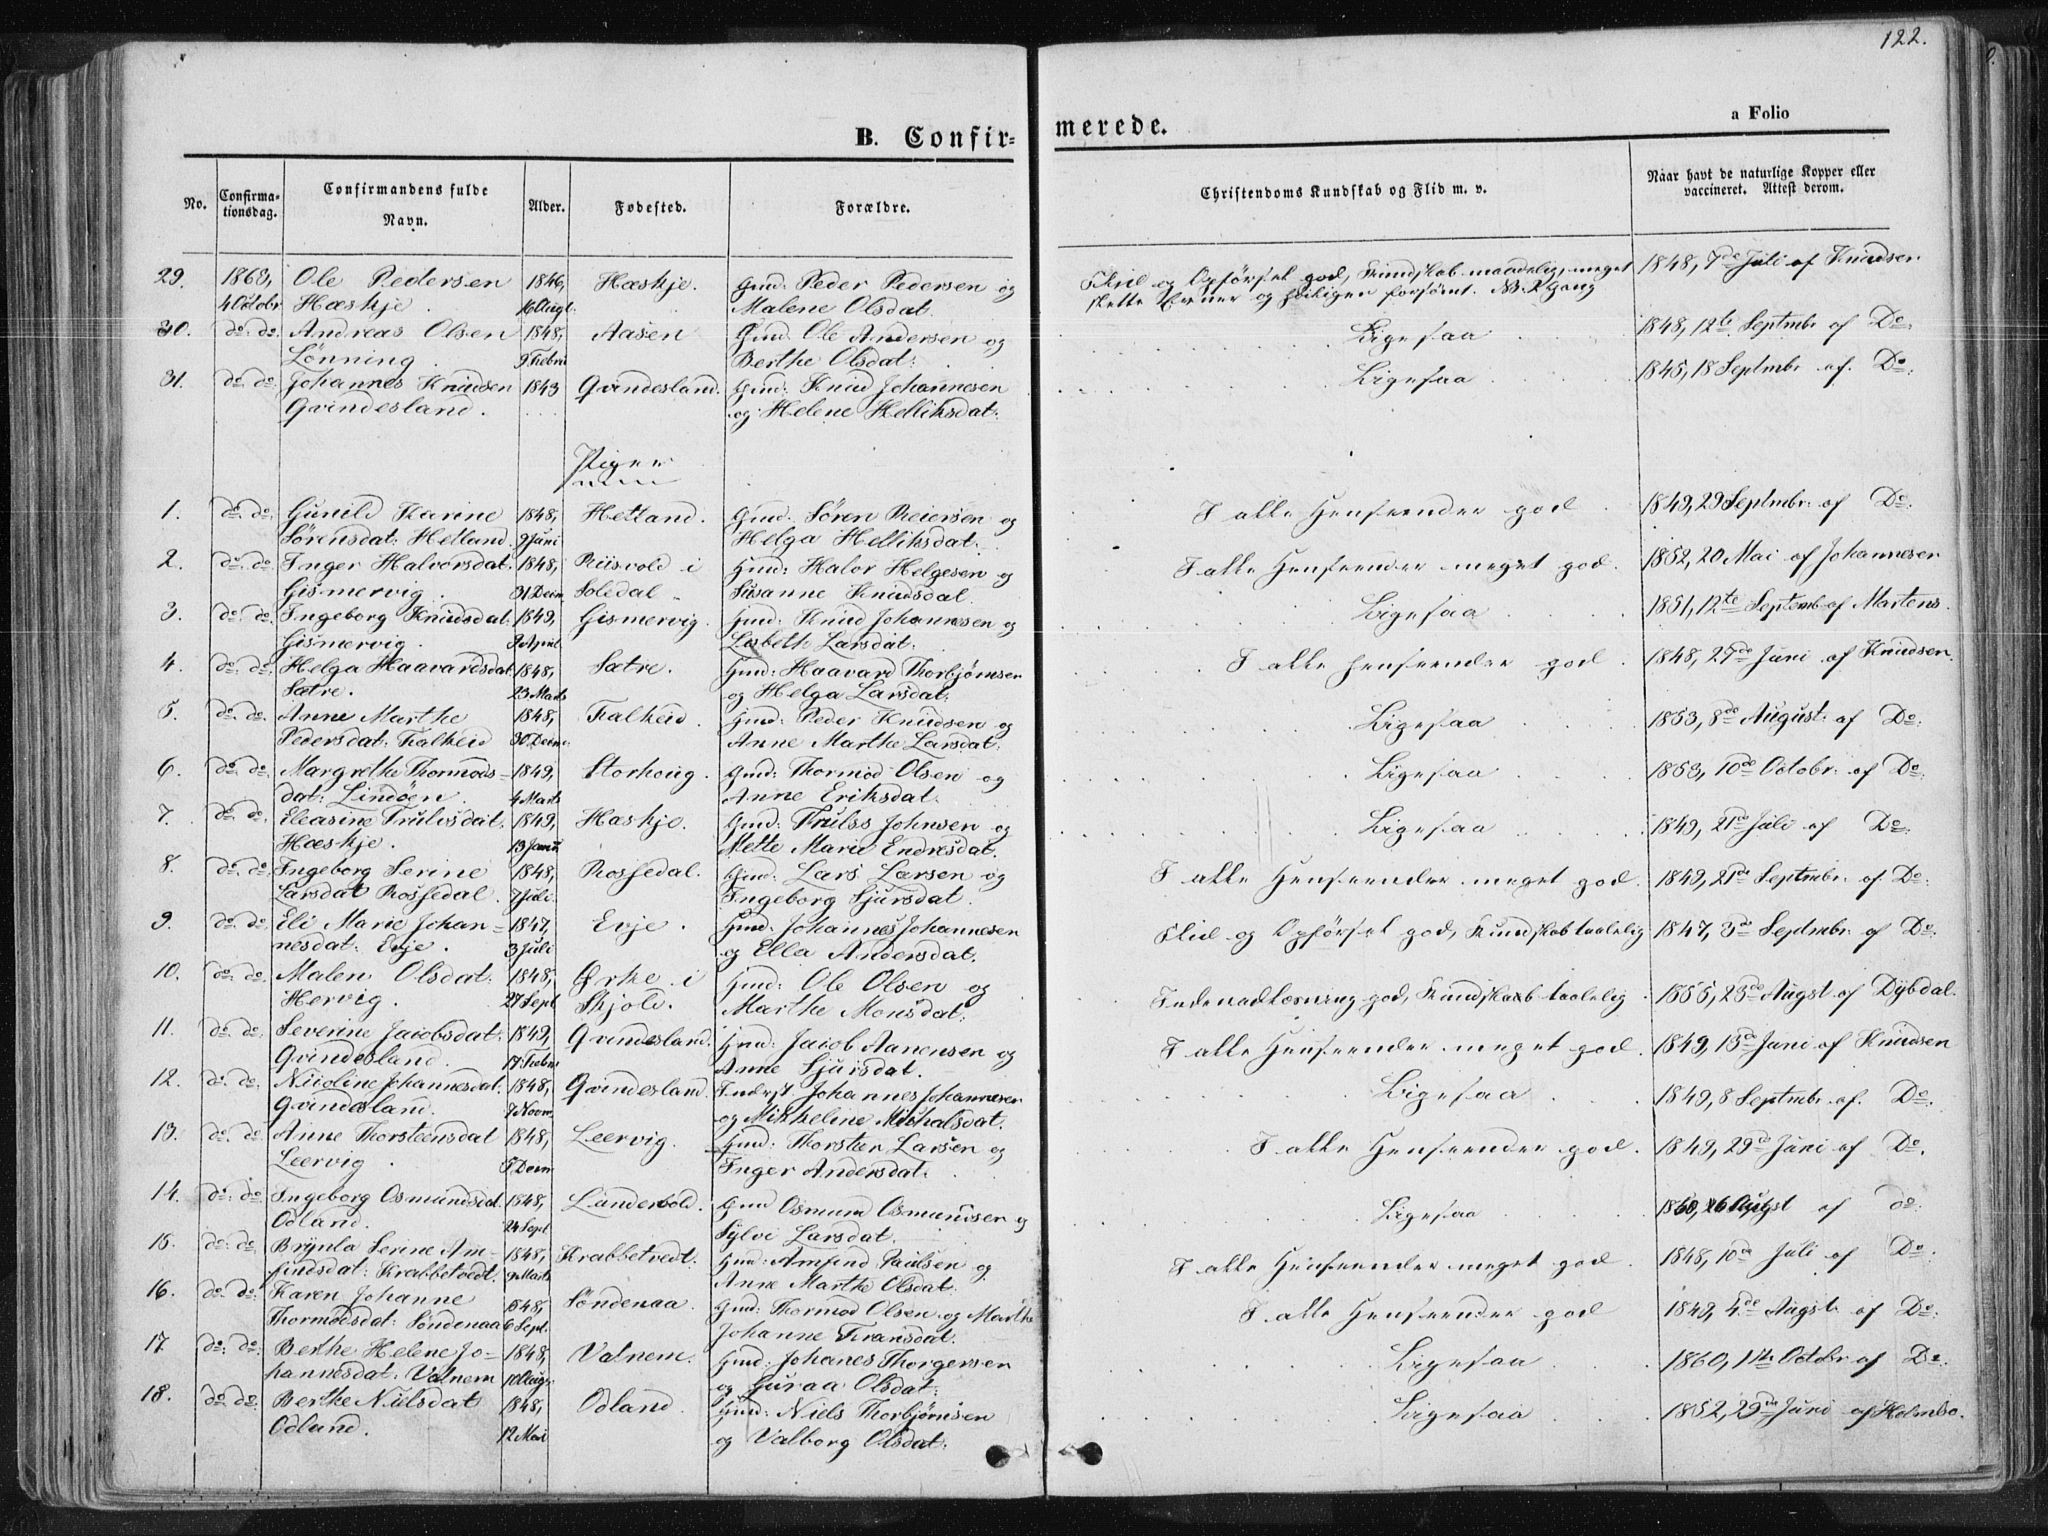 122.
B. Confir-
merede.
a Folio
No.
Confirma-
tionsdag.
Confirmandens fulde
Navn.
Alder.
Fødested.
Forældre.
Christendoms Kundskab og Flid m. v.
Naar havt de naturlige Kopper eller
vaccineret. Attest derom.
29. 1863, Ole Pedersen 1846, Hæskje. Gmd: Peder Pedersen og Flid og Opførsel god, Kundskab maadelig, meget 1848, 7de Juli af Knudsen
4 Octobr Hæskje 16 Augt. Malene Olsdat. slette Evner og forsømt. NB. 2 Gang
30. do: do: Andreas Olsen 1848, Aasen Gmd. Ole Andersen og Ligesaa 1848, 12te Septmbr af Do:
Lønning. 9 Febru Berthe Olsdat:
31. do: do: Johannes Knudsen 1843 Gvindesland. Gmd: Knud Johannesen Ligesaa 1845, 18 Septmbr af. Do:
Gvindesland. og Helene Helliksdat:
Piger
1. do: do: Gunild Karine 1848, Hetland. Gmd. Søren Reiersen og I alle Henseender god 1849, 29 Septmbr: af Do:
Sørensdat: Hetland. 9 Juni Helga Helliksdat.
2. do: do: Inger Halvorsdat. 1848, Riisvold i Gmd: Halor Helgesen og I alle Henseender meget god. 1852, 20 Mai af Johannesen
Gismervig. 31 Decm Soledal Susanne Knudsdal
3. do: do: Ingeborg Knudsdat: 1849, Gismervig. Gmd: Knud Johannesen og Ligesaa 1851, 12te Septemb af Martens.
Gismervig. 9 April Lisbeth Larsdat:
4. do: do: Helga Haavardsdat 1848, Sætre. Gmd: Haavard Thorbjørnsen I alle Henseender god. 1848, 29de Juni af Knudsen.
Sætre. 23 Marts og Helga Larsdat:
5. do: do: Anne Marthe 1848, Falkeid. Gmd: Peder Knudsen og Ligesaa 1853, 8de August: af Do:
Pedersdat: Falkeid 30 Decm: Anne Marthe Larsdat:
6. do: do: Margrethe Thormods- 1849, Storhoug. Gmd: Thormod Olsen og Ligesaa 1853, 10de Octobr: af Do:
dat: Lindøen. 4 Marts Anne Eriksdat.
7. do: do: Eleasine Trulsdat. 1849, Hæskje. Gmd: Thrulss Johnsen og Ligesaa 1849, 21de Juli af Do:
Hæskje. 13 Janu Mette Marie Endresdat.
8. do: do: Ingeborg Serine 1848, Rossedal. Gmd: Lars Larsen og I alle Henseender meget god. 1849, 21de Septmbr: af Do:
Larsdat Rossedal. 7 Juli. Ingeborg Sjursdat.
9. do: do: Eli Marie Johan- 1847, Evje. Gmd: Johannes Johannesen Flid og Opførsel god, Kundskab taalelig 1847, 3de Septmbr: af Do:
nesdat: Evje. 3 Juli og Ella Andersdat.
10. do: do: Malen Olsdat: 1848, Ørke i Gmd: Ole Olsen og Indenadlæsning god, Kundskab taalelig 1855, 23de Augst af Dybdal.
Hervig. 27 Sept Skjold. Marthe Monsdat:
11. do: do: Severine Jacobsdat. 1849, Gvindesland. Gmd: Jacob Aanensen og I alle Henseender meget god. 1849, 13de Juni af Knudsen
Gvindesland. 17 Febru Anne Sjursdat.
12. do: do: Nicoline Johannesdat. 1848, Gvindesland. Inderst Johannes Johannesen Ligesaa 1849, 8 Septmbr af. Do:
Gvindesland. 9 Novm og Mikkeline Michalsdat.
13. do: do: Anne Thorsteensdat 1848, Leervig. Gmd: Thorsteen Larsen og I alle Henseender god. 1849, 29de Juni af Do.
Leervig 5 Decm Inger Andersdat.
14. do: do: Ingeborg Osmundsdat. 1848, Landerbold. Gmd Osmund Osmundsen og Ligesaa 1860, 16 Augst af do:
Odland. 24 Sept Sylvi Larsdat.
15. do: do: Brynla Serine Am- 1848, Krabbetvedt. Gmd: Amfind Paulsen og I alle Henseender meget god. 1848, 10de Juli af Do.
findsdat: Krabbetvedt. 9 Marts Anne Marthe Olsdat.
16. do: do: Karen Johanne 1848, Søndenaa. Gmd: Thormod Olsen og Marthe I alle Henseender god 1849, 4de Augst af Do:
Thormodsdat: Søndenaa 6 Sept. Johanne Fransdat.
17. do: do: Berthe Helene Jo- 1848, Valnem. Gmd: Johanes Thorgersen Ligesaa 1860, 1te Octbr af Do:
hannesdat: Valnem 10 Aug: og Guraa Olsdat:
18. do: do: Berthe Nielsdat 1848, Odland. Gmd: Niels Thorbjørnsen Ligesaa 1852, 29de Juni af Holmbo.
Odland. 12 Mai og Valborg Olsdat: